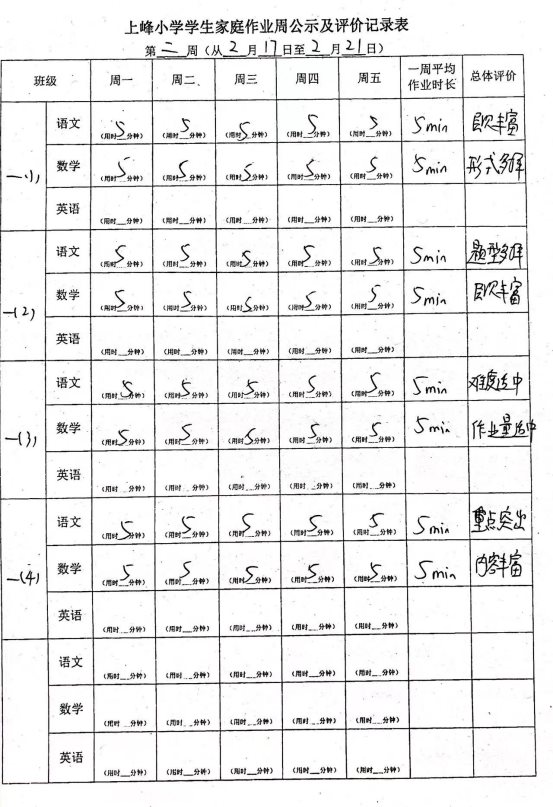 上峰小学学生家庭作业周公示及评价记录表
第 二 周（从 2 月 17 日至 2 月 21 日）
班级 周一 周二 周三 周四 周五 一周平均作业时长 总体评价
一(1) 语文 （用时 5 分钟） （用时 5 分钟） （用时 5 分钟） （用时 5 分钟） （用时 5 分钟） 5min 丰富
数学 （用时 5 分钟） （用时 5 分钟） （用时 5 分钟） （用时 5 分钟） （用时 5 分钟） 5min 形式多样
英语 （用时__分钟） （用时__分钟） （用时__分钟） （用时__分钟） （用时__分钟）
一(2) 语文 （用时 5 分钟） （用时 5 分钟） （用时 5 分钟） （用时 5 分钟） （用时 5 分钟） 5min 题型多样
数学 （用时 5 分钟） （用时 5 分钟） （用时 5 分钟） （用时 5 分钟） （用时 5 分钟） 5min 丰富
英语 （用时__分钟） （用时__分钟） （用时__分钟） （用时__分钟） （用时__分钟）
一(3) 语文 （用时 5 分钟） （用时 5 分钟） （用时 5 分钟） （用时 5 分钟） （用时 5 分钟） 5min 难度适中
数学 （用时 5 分钟） （用时 5 分钟） （用时 5 分钟） （用时 5 分钟） （用时 5 分钟） 5min 作业量适中
英语 （用时__分钟） （用时__分钟） （用时__分钟） （用时__分钟） （用时__分钟）
一(4) 语文 （用时 5 分钟） （用时 5 分钟） （用时 5 分钟） （用时 5 分钟） （用时 5 分钟） 5min 重点突出
数学 （用时 5 分钟） （用时 5 分钟） （用时 5 分钟） （用时 5 分钟） （用时 5 分钟） 5min 内容丰富
英语 （用时__分钟） （用时__分钟） （用时__分钟） （用时__分钟） （用时__分钟）
语文 （用时__分钟） （用时__分钟） （用时__分钟） （用时__分钟） （用时__分钟）
数学 （用时__分钟） （用时__分钟） （用时__分钟） （用时__分钟） （用时__分钟）
英语 （用时__分钟） （用时__分钟） （用时__分钟） （用时__分钟） （用时__分钟）